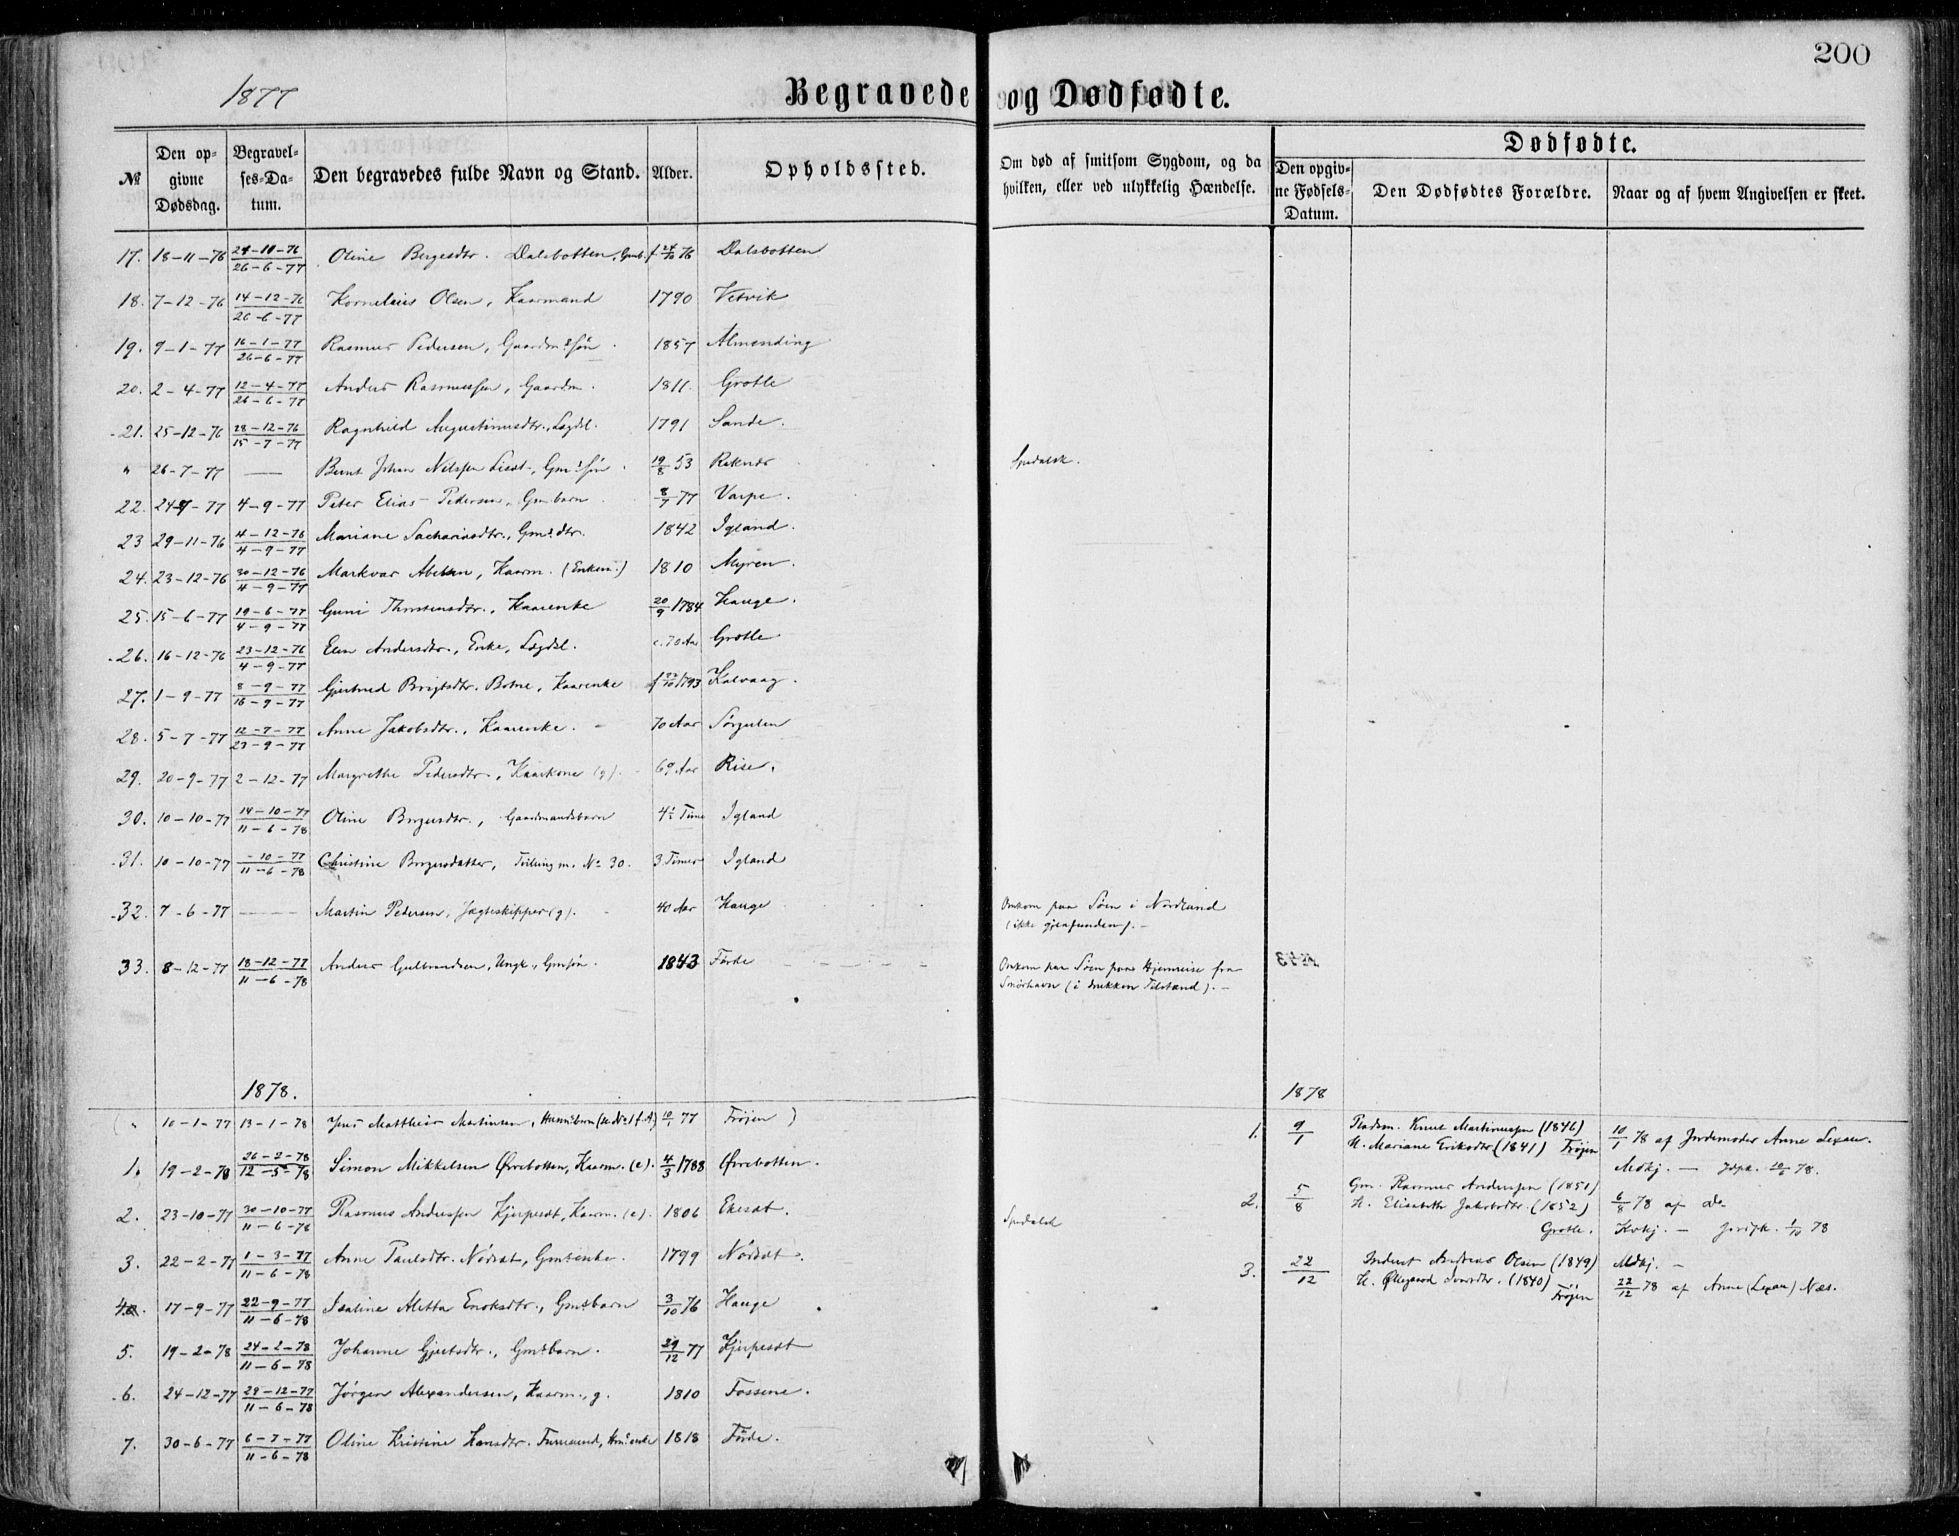 200
1877
Begravede og Dødfødte.
№ Den opgivne Dødsdag. Begravelses-Datum. Den begravedes fulde Navn og Stand. Alder. Opholdssted. Om død af smitsom Sygdom, og da hvilken, eller ved ulykkelig Hændelse. Dødfødte. Den opgivne Fødsels-Datum. Den Dødfødtes Forældre. Naar og af hvem Angivelsen er skeet.
17. 18-11-76 24-11-76 26-6-77 Oline Dalsbotten, 76 Dalsbotten
18. 7-12-76 14-12-76 26-6-77 Kornelius Olsen, Kaarmand 1790 Vetvik
19. 9-1-77 16-1-77 26-6-77 Rasmus Pedersen, Gaardm.s Søn 1857 Almending
20. 2-4-77 12-4-77 26-6-77 Anders Rasmussen, Gaardm. 1811. Grotle
21. 25-12-76 28-12-76 15-7-77 Ragnhild Augustinusdtr., Lægdsl. 1791 Sande.
" 26-7-77 — Bernt Johan Nilssen Gm.s Søn 19/8 53 Raknes Spedalsk.
22. 77 4-9-77 Peter Elias Pedersen, Gmbarn 8/7 77 Varpe.
23 29-11-76 4-12-76 4-9-77 Mariane Sachariasdtr., Gm.s dtr. 1842 Igland.
24. 23-12-76 30-12-76 4-9-77 Markvar Abelsen, Kaarm. (Enkem.) 1810 Myren.
25. 15-6-77 19-6-77 4-9-77 Guni Thorstensdtr., Kaarenke 20/9 1784 Hauge.
26. 16-12-76 23-12-76 4-9-77 Elen Andersdtr., Enke, Lægdsl. c. 70 Aar Grotle
27. 1-9-77 8-9-77 16-9-77 Gjertrud Brigtsdtr. Botne, Kaarenke f 1793 Kalvaag.
28. 5-7-77 12-7-77 23-9-77 Anne Jakobsdtr., Kaarenke. 70 Aar Sørgulen
29. 20-9-77 2-12-77 Margrethe Pedersdtr., Kaarkone (g). 69 Aar Rise.
30. 10-10-77 14-10-77 11-6-78 Oline Børgesdtr., Gaardmandsbarn Time Igland
31. 10-10-77 -10-77 11-6-78 Christine Børgesdatter, Tvilling m. No 30. 3 Timer Igland
32. 7-6-77 — Martin Pedersen, Jægteskipper (g). 40 Aar Hauge Omkom paa Søen i Nordland
(ikke gjenfunden). -
33. 8-12-77 18-12-77 11-6-78 Anders Gulbrandsen, Ungk., Gmsøn 1843 Førde Omkom paa Søen paa Hjemreise fra
Smørhavn (i drukken Tilstand). -
1878. 1878
( " 10-1-77 13-1-78 Jens Matthias Martinsen, Husm.s barn 77 Frøjen )
1. 9/1 Pladsm. Knut Martinussen (1846) 10/1 78 af Jordemoder Anne Lexau.
H. Mariane Eriksdtr (1841) Frøjen Mdkj. — Jdpk. 78.
1. 19-2-78 26-2-78 12-5-78 Simon Mikkelsen Øvrebotten, Kaarm. (e). 4/3 1788 Øvrebotten.
2. 5/8 Gm. Rasmus Anderssen (1851) 6/8 78 af do
H. Elisabeth Jakobsdtr. (1852)
Grotle. Kvkj. — 78
2. 23-10-77 30-10-77 11-6-78 Rasmus Anderssen Hjerpesæt, Kaarm. (e). 1806 Ekesæt. Spedalsk
3. 22-2-77 1-3-77 11-6-78 Anne Paulsdtr. Nødsæt, Gmsenke. 1799 Nødsæt.
3. 22/12 Inderst Andreas Olsen (1849) Mdkj. -
H. Øllegaard (1840) Frøjen 22/12 78 af Anne (Lexau) Næs.
4. 17-9-77 22-9-77 11-6-78 Isaline Aletta Enoksdtr., Gmsbarn 3/10 76 Hauge
5. 19-2-78 24-2-78 11-6-78 Johanne Gjertsdtr., Gmsbarn. 29/12 77 Hjerpesæt
6. 24-12-77 29-12-77 11-6-78 Jørgen Alexandersen, Kaarm., g. 1810 Fossene.
7. 30-6-77 6-7-77 11-6-78 Oline Kristine Hansdtr. Hm.s enke 1818 Førde.